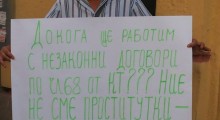 ДОКОГА ЩЕ РАБОТИМ
С НЕЗАКОННИ ДОГОВОРИ
ПО ЧЛ.68 ОТ КТ??? НИЕ
НЕ СМЕ ПРОСТИТУТКИ —